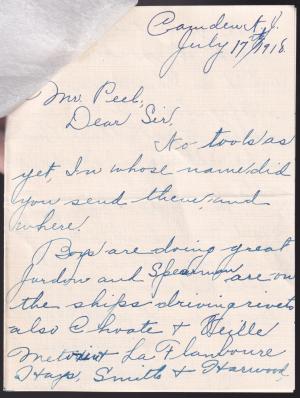 Camden N.J.
July 17th 1918.
Mr. Peel,
Dear Sir,
No tools as
yet, In whose name did
you send them, and
where.
Boys are doing great
Jordon and Spearman, are on
the ships driving rivets
also Choate &
La Flamboure
Hays, Smith & Harwood,